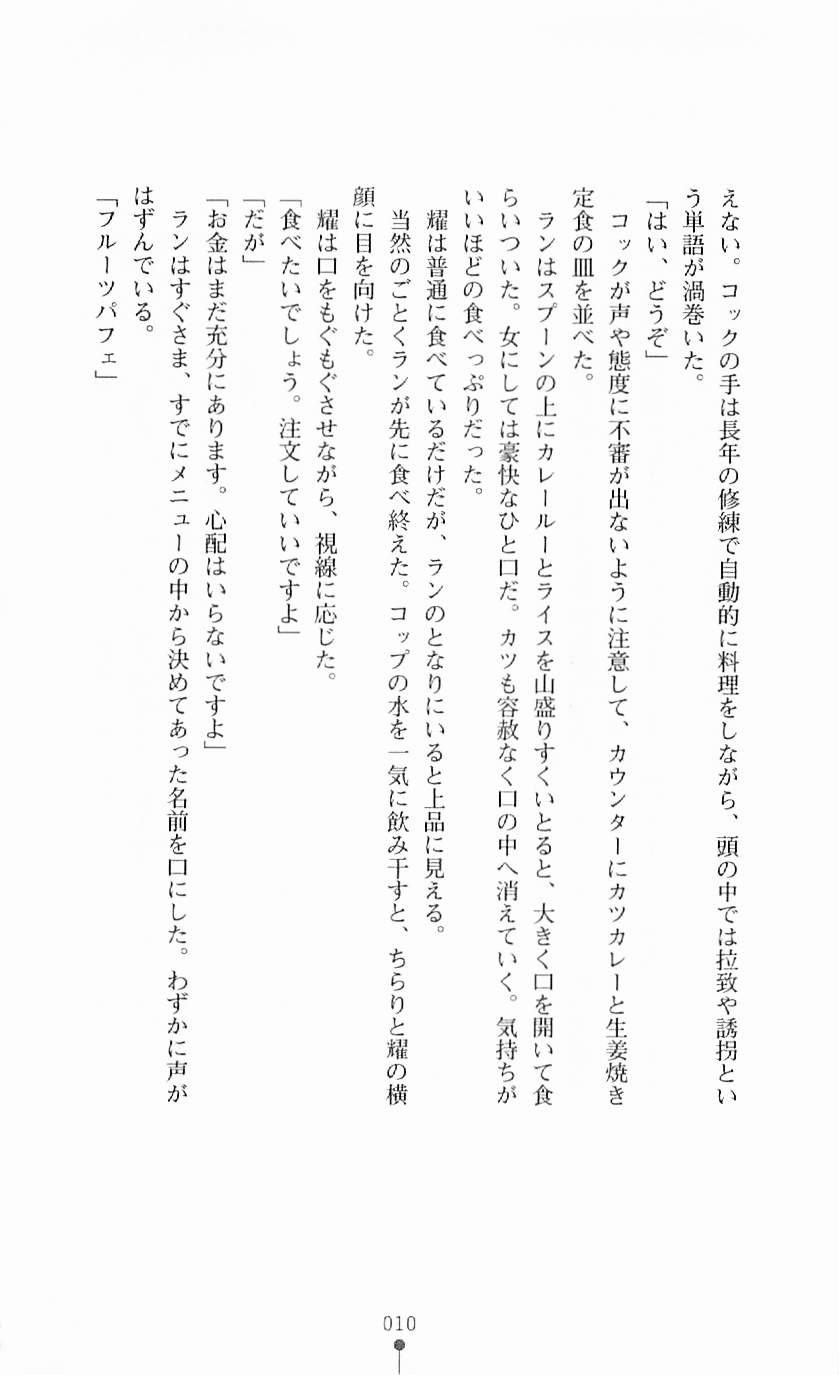 えない。コックの手は長年の修練で自動的に料理をしながら、頭の中では拉致や誘拐とい
う単語が渦巻いた。
「はい、どうぞ」
　コックが声や態度に不審が出ないように注意して、カウンターにカツカレーと生姜焼き
定食の皿を並べた。
　ランはスプーンの上にカレールーとライスを山盛りすくいとると、大きく口を開いて食
らいついた。女にしては豪快なひと口だ。カツも容赦なく口の中へ消えていく。気持ちが
いいほどの食べっぷりだった。
　耀は普通に食べているだけだが、ランのとなりにいると上品に見える。
　当然のごとくランが先に食べ終えた。コップの水を一気に飲み干すと、ちらりと耀の横
顔に目を向けた。
　耀は口をもぐもぐさせながら、視線に応じた。
「食べたいでしょう。注文していいですよ」
「だが」
「お金はまだ充分にあります。心配はいらないですよ」
　ランはすぐさま、すでにメニューの中から決めてあった名前を口にした。わずかに声が
はずんでいる。
「フルーツパフェ」
010